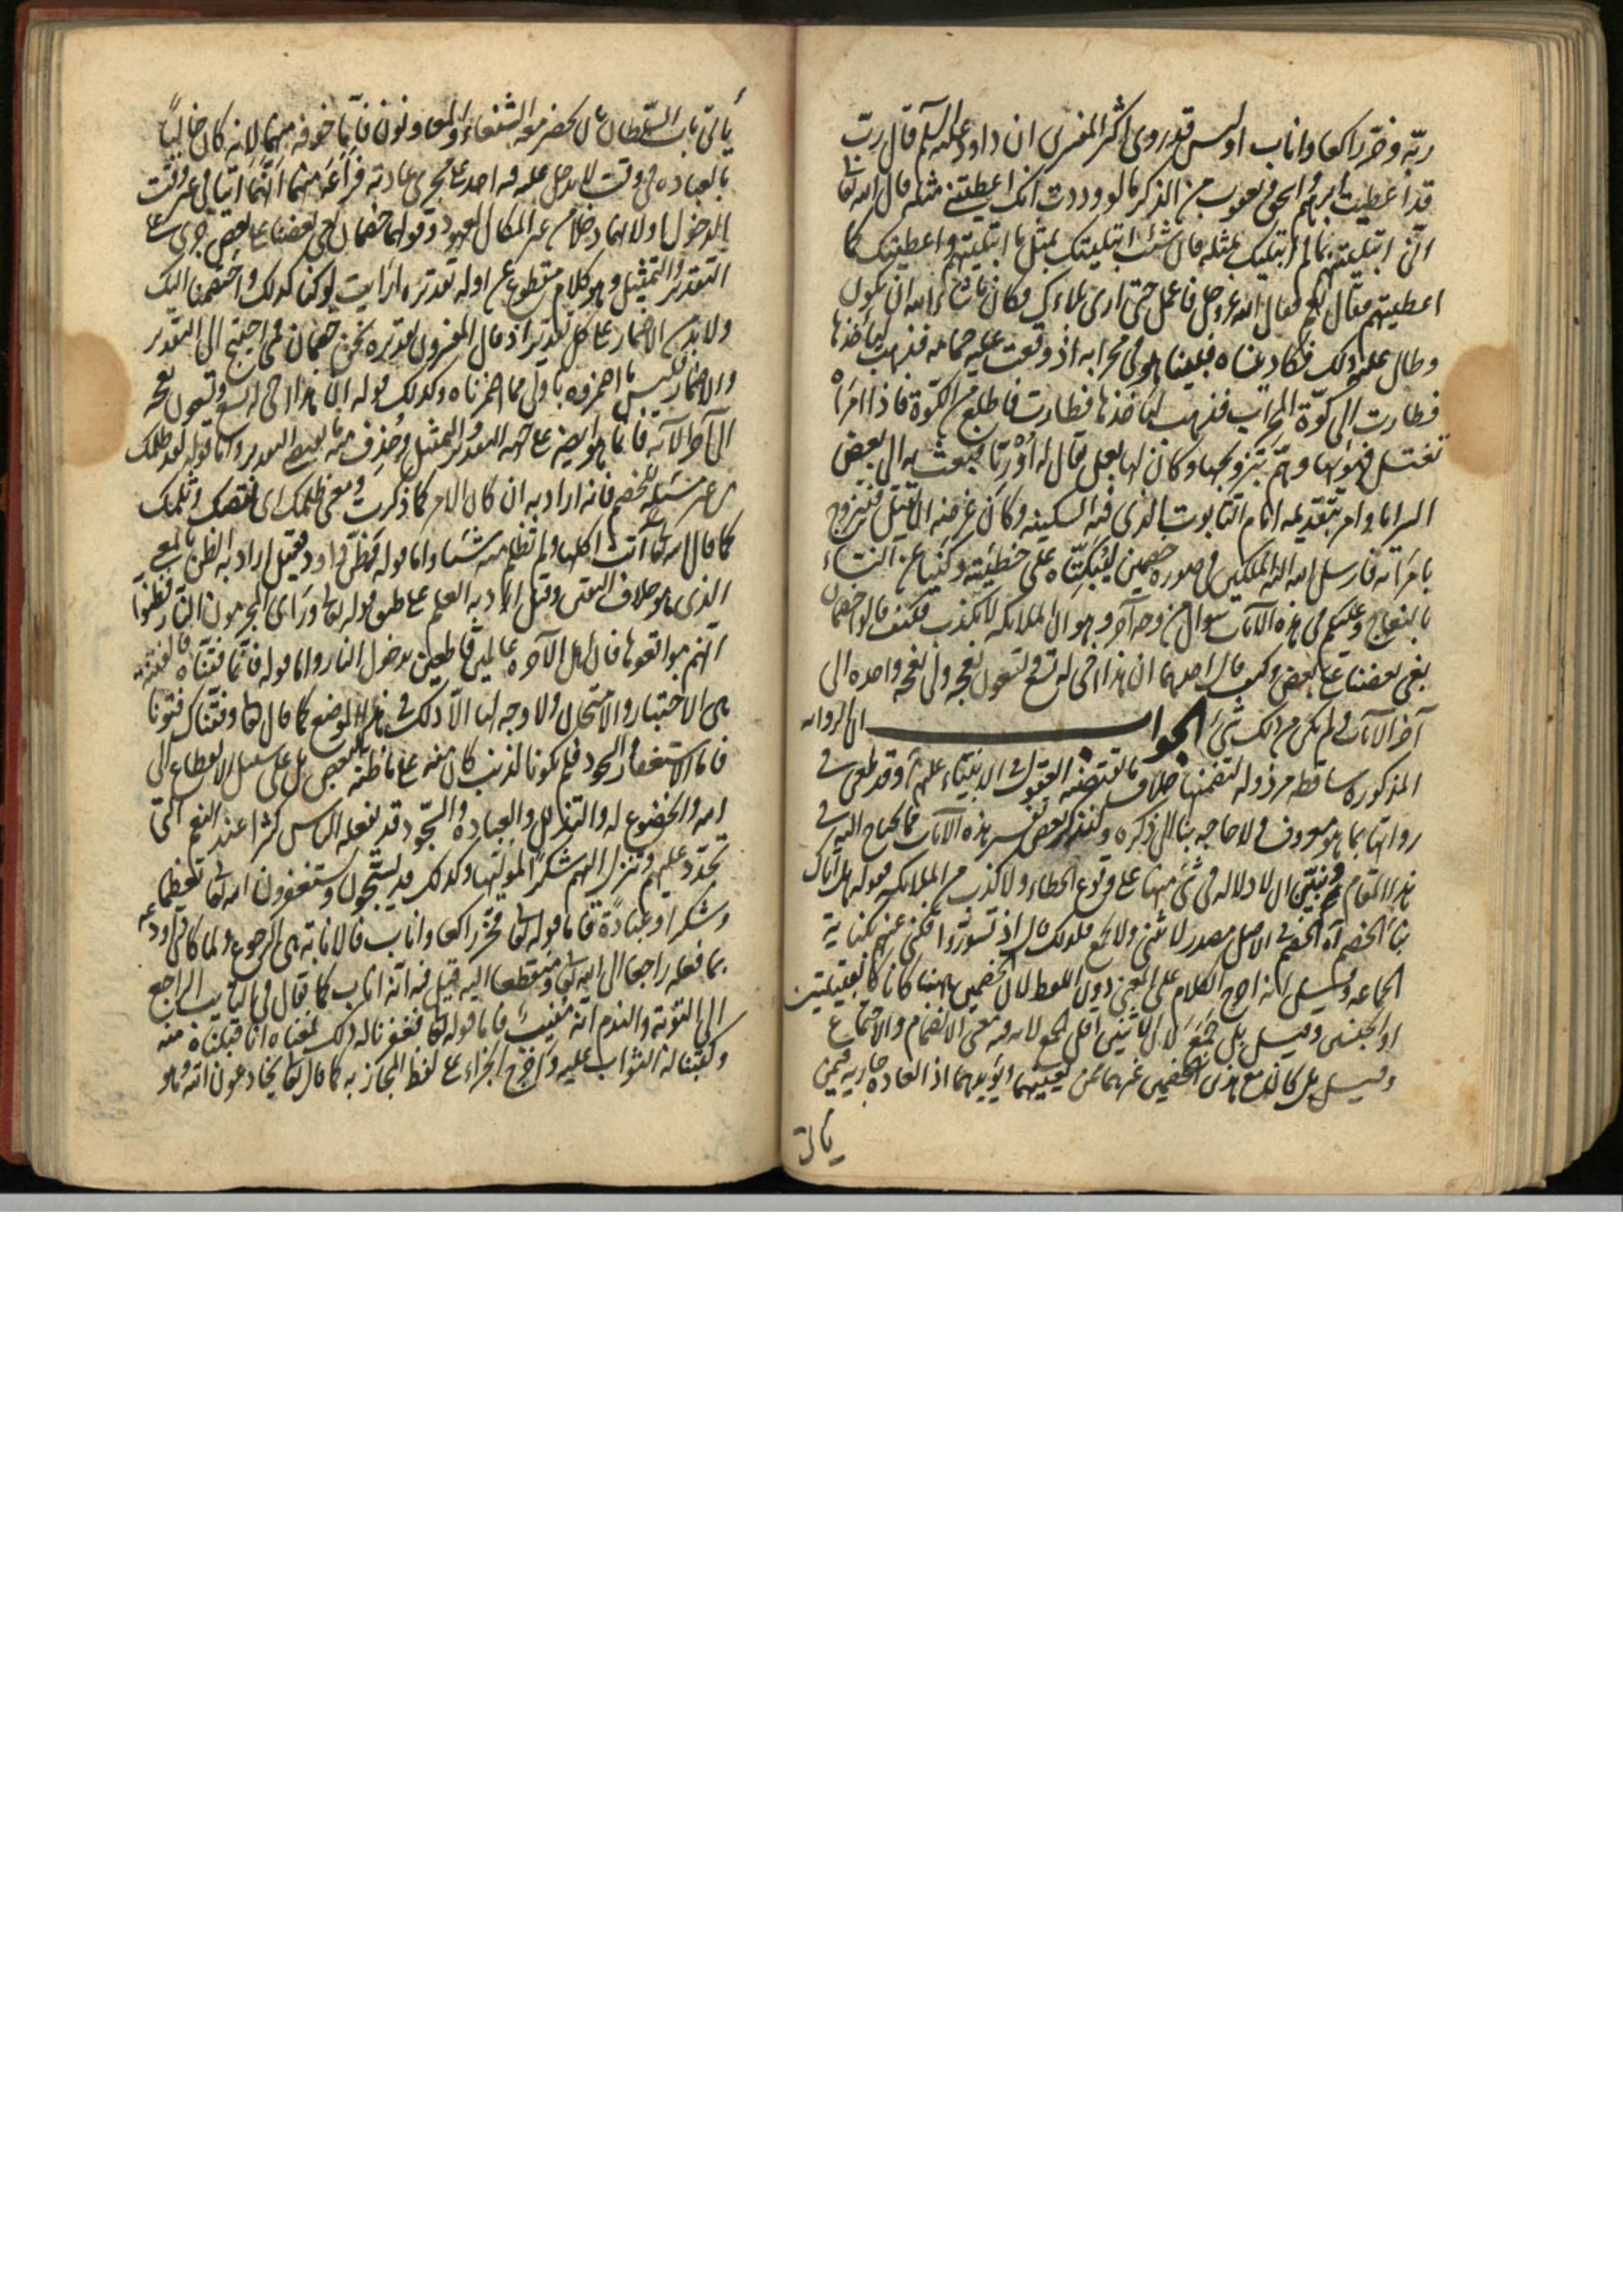 ربّه وخرّ راكعا واناب اوليس قد روى اكثر المفسرين ان داود عليه السلم قال رب
قد اعطيت ابرهيم واسحق ويعقوب من الذكر ما لو وددت انك اعطيتني مثله قال الله تعا
انّي ابتليتهم بما لم ابتليك بمثله فان شئت ابتليتك بمثل ما ابتليتهم واعطيتك كما
اعطيتهم فقال نعم فقال الله عز وجل فاعمل حتى ارى بلاءك فكان ما شاء الله ان يكون
وطال عليه ذلك فكاد ينساه فبينا هو في محرابه اذ وقعت عليه حمامه فذهب ليأخذها
فطارت الى كوّة المحراب فذهب ليأخذها فطارت فاطلع من الكوّة فاذا امرأة
تغتسل فهويها وهمّ بتزويجها وكان لها بعل يقال له اوريّا فبعث به الى بعض
السرايا وامر بتقديمه امام التابوت الذي فيه السكينه وكان غرضه ان يقتل فيتزوج
بامرأته فارسل الله اليه الملكين في صوره خصمين ليبكّتاه على خطيئته وكنيا عن النساء
بالنعاج وعليكم في هذه الآيات سوال من وجه آخر وهو ان الملائكه لا تكذب فكيف قالوا خصمان
بغى بعضنا على بعض وكيف قال احدهما ان هذا اخي له تسع وتسعون نعجه ولي نعجه واحده الى
آخر الآيات ولم يكن من ذلك شيء الجواب ان الروايه
المذكوره ساقطه مرذوله لتضمنها خلاف ما تقتضيه العقول في الانبياء عليهم وقد طعن في
رواتها بما هو معروف ولا حاجه بنا الى ذكره وسنذكر بعض تفسير هذه الآيات مما يحتاج اليه في
هذا المقام ونبيّن ان لا دلاله في شيء منها على وقوع الخطاء ولا كذب من الملائكه فقوله هل اتاك
نبأ الخصم آه الخصم في الاصل مصدر لا يثنى ولا يجمع فلذلك قال اذ تسوّروا فكنى عنهم بكناية
الجماعه وقيل انه اخرج الكلام على المعنى دون اللفظ لان الخصمين ههنا كانا كالقبيلتين
او الجنسين وقيل بل جمع لان الاثنين اقل الجمع لانه فيه معنى الانضمام والاجتماع
وقيل بل كان مع هذين الخصمين غيرهما ممن يعينهما ويؤيدهما اذ العاده جاريه فيمن
ياتي
يأتي باب السلطان بان يحضر معه الشفعاء والمعاونون فامّا خوفه منهما لانه كان خاليا
بالعباده في وقت لا يدخل عليه فيه احد على مجرى عادته فراعه منهما انّهما اتيا في غير وقت
الدخول او لانهما دخلا من غير المكان المعهود وقولهما خصمان بغى بعضنا على بعض جرى على
التقدير والتمثيل وهو كلام مقطوع عن اوله تقديره ارايت لو كنا كذلك واحتكمنا اليك
ولا بد من الاضمار على كل تقدير اذ قال المفسرون تقديره نحن خصمان فمتى احتيج الى التقدير
والاضمار فليس ما اضمروه باولى مما اضمرناه وكذلك قوله ان هذا اخي له تسع وتسعون نعجه
الى آخر الآيه فانما هو ايضا على جهه التقدير والتمثيل وحذف منه ما يقتضي التقدير واما قوله لقد ظلمك
من غير مسئله للخصم فانه اراد به ان كان الامر كما ذكرت ومعنى ظلمك اى نقصك وثلمك
كما قال الله تعالى آتت اكلها ولم تظلم منه شيئا واما قوله فظنّ داود فقيل اراد به الظن بالمعنى
الذي هو خلاف اليقين وقيل اراد به العلم على طبق قوله تعالى ورأى المجرمون النار فظنوا
انّهم مواقعوها فان اهل الآخره عالمين قاطعين بدخول النار واما قوله فانّما فتنّاه فالفتنة
هي الاختبار والامتحان ولا وجه لها الّا ذلك في هذا الموضع كما قال تعا وفتنّاك فتونا
فاما الاستغفار والسجود فلم يكونا لذنب كان منه على ما ظنه بعض بل على سبيل الانقطاع الى
الله والخضوع له والتذلل والعباده والسّجود قد يفعله الناس كثيرا عند النعم التي
تتجدد عليهم وتنزل اليهم شكرا لموليها وكذلك قد يسبّحون ويستغفرون الله تعا تعظيما
وشكرا وعبادة فاما قوله تعا فخرّ راكعا واناب فالانابة هي الرجوع ولما كان داود عم
بما فعله راجعا الى الله تعا ومنقطعا اليه قيل فيه انّه اناب كما يقال في التائب الراجع
الى التوبه والندم انّه منيب فاما قوله تعا فغفرنا له ذلك فمعناه انا قبلناه منه
وكتبنا له الثواب عليه واخرج الجزاء على لفظ المجاز به كما قال تعا يخادعون الله وهو